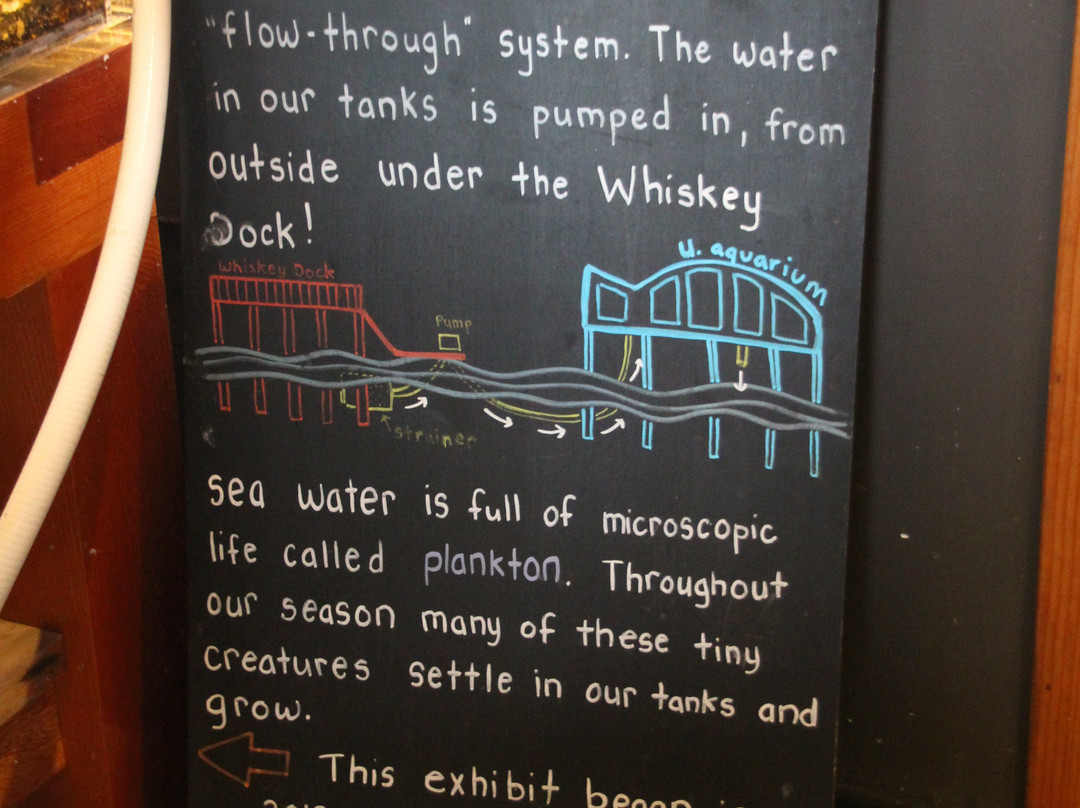 "flow-through" system. The water
in our tanks is pumped in, from
outside under the Whiskey
Dock!
Whiskey Dock
u. aquarium
Pump
strainer
sea water is full of microscopic
life called plankton. Throughout
our season many of these tiny
creatures settle in our tanks and
grow.
This exhibit began